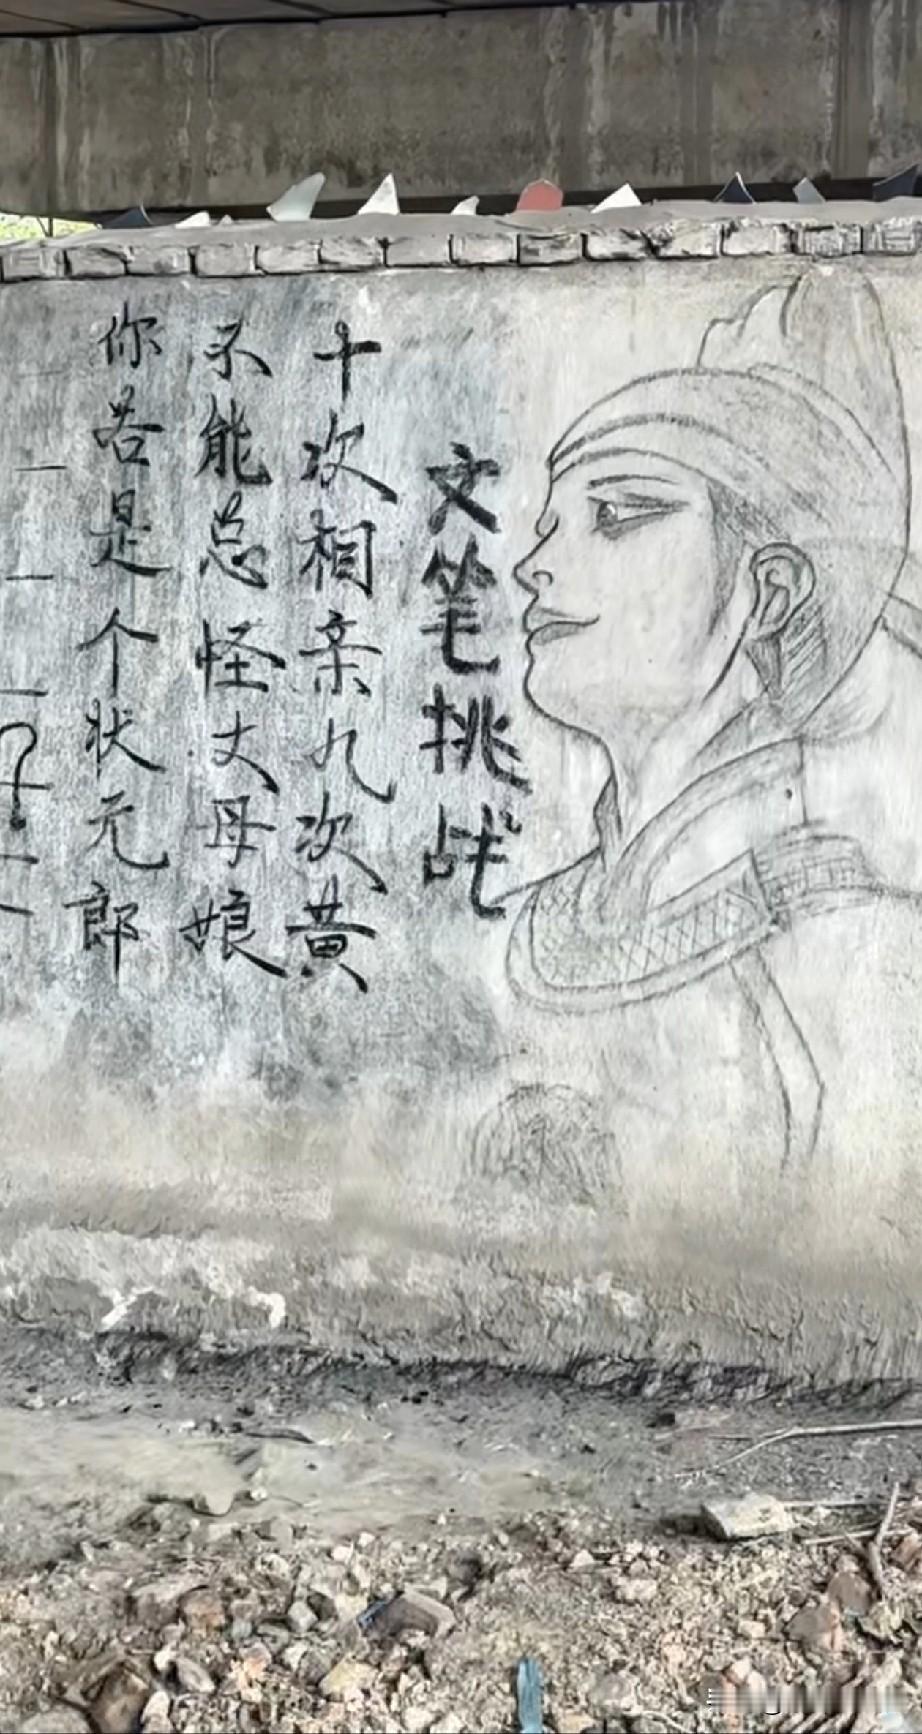 文笔挑战
十次相亲九次黄
不能总怪丈母娘
你若是个状元郎
？